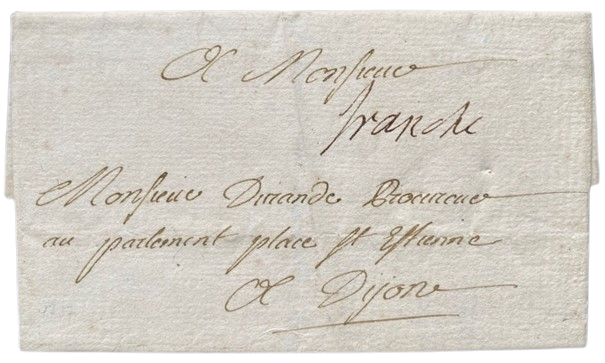 A Monsieur
franche
Monsieur Durande Procureur
au parlement place St Estienne
A Dijon